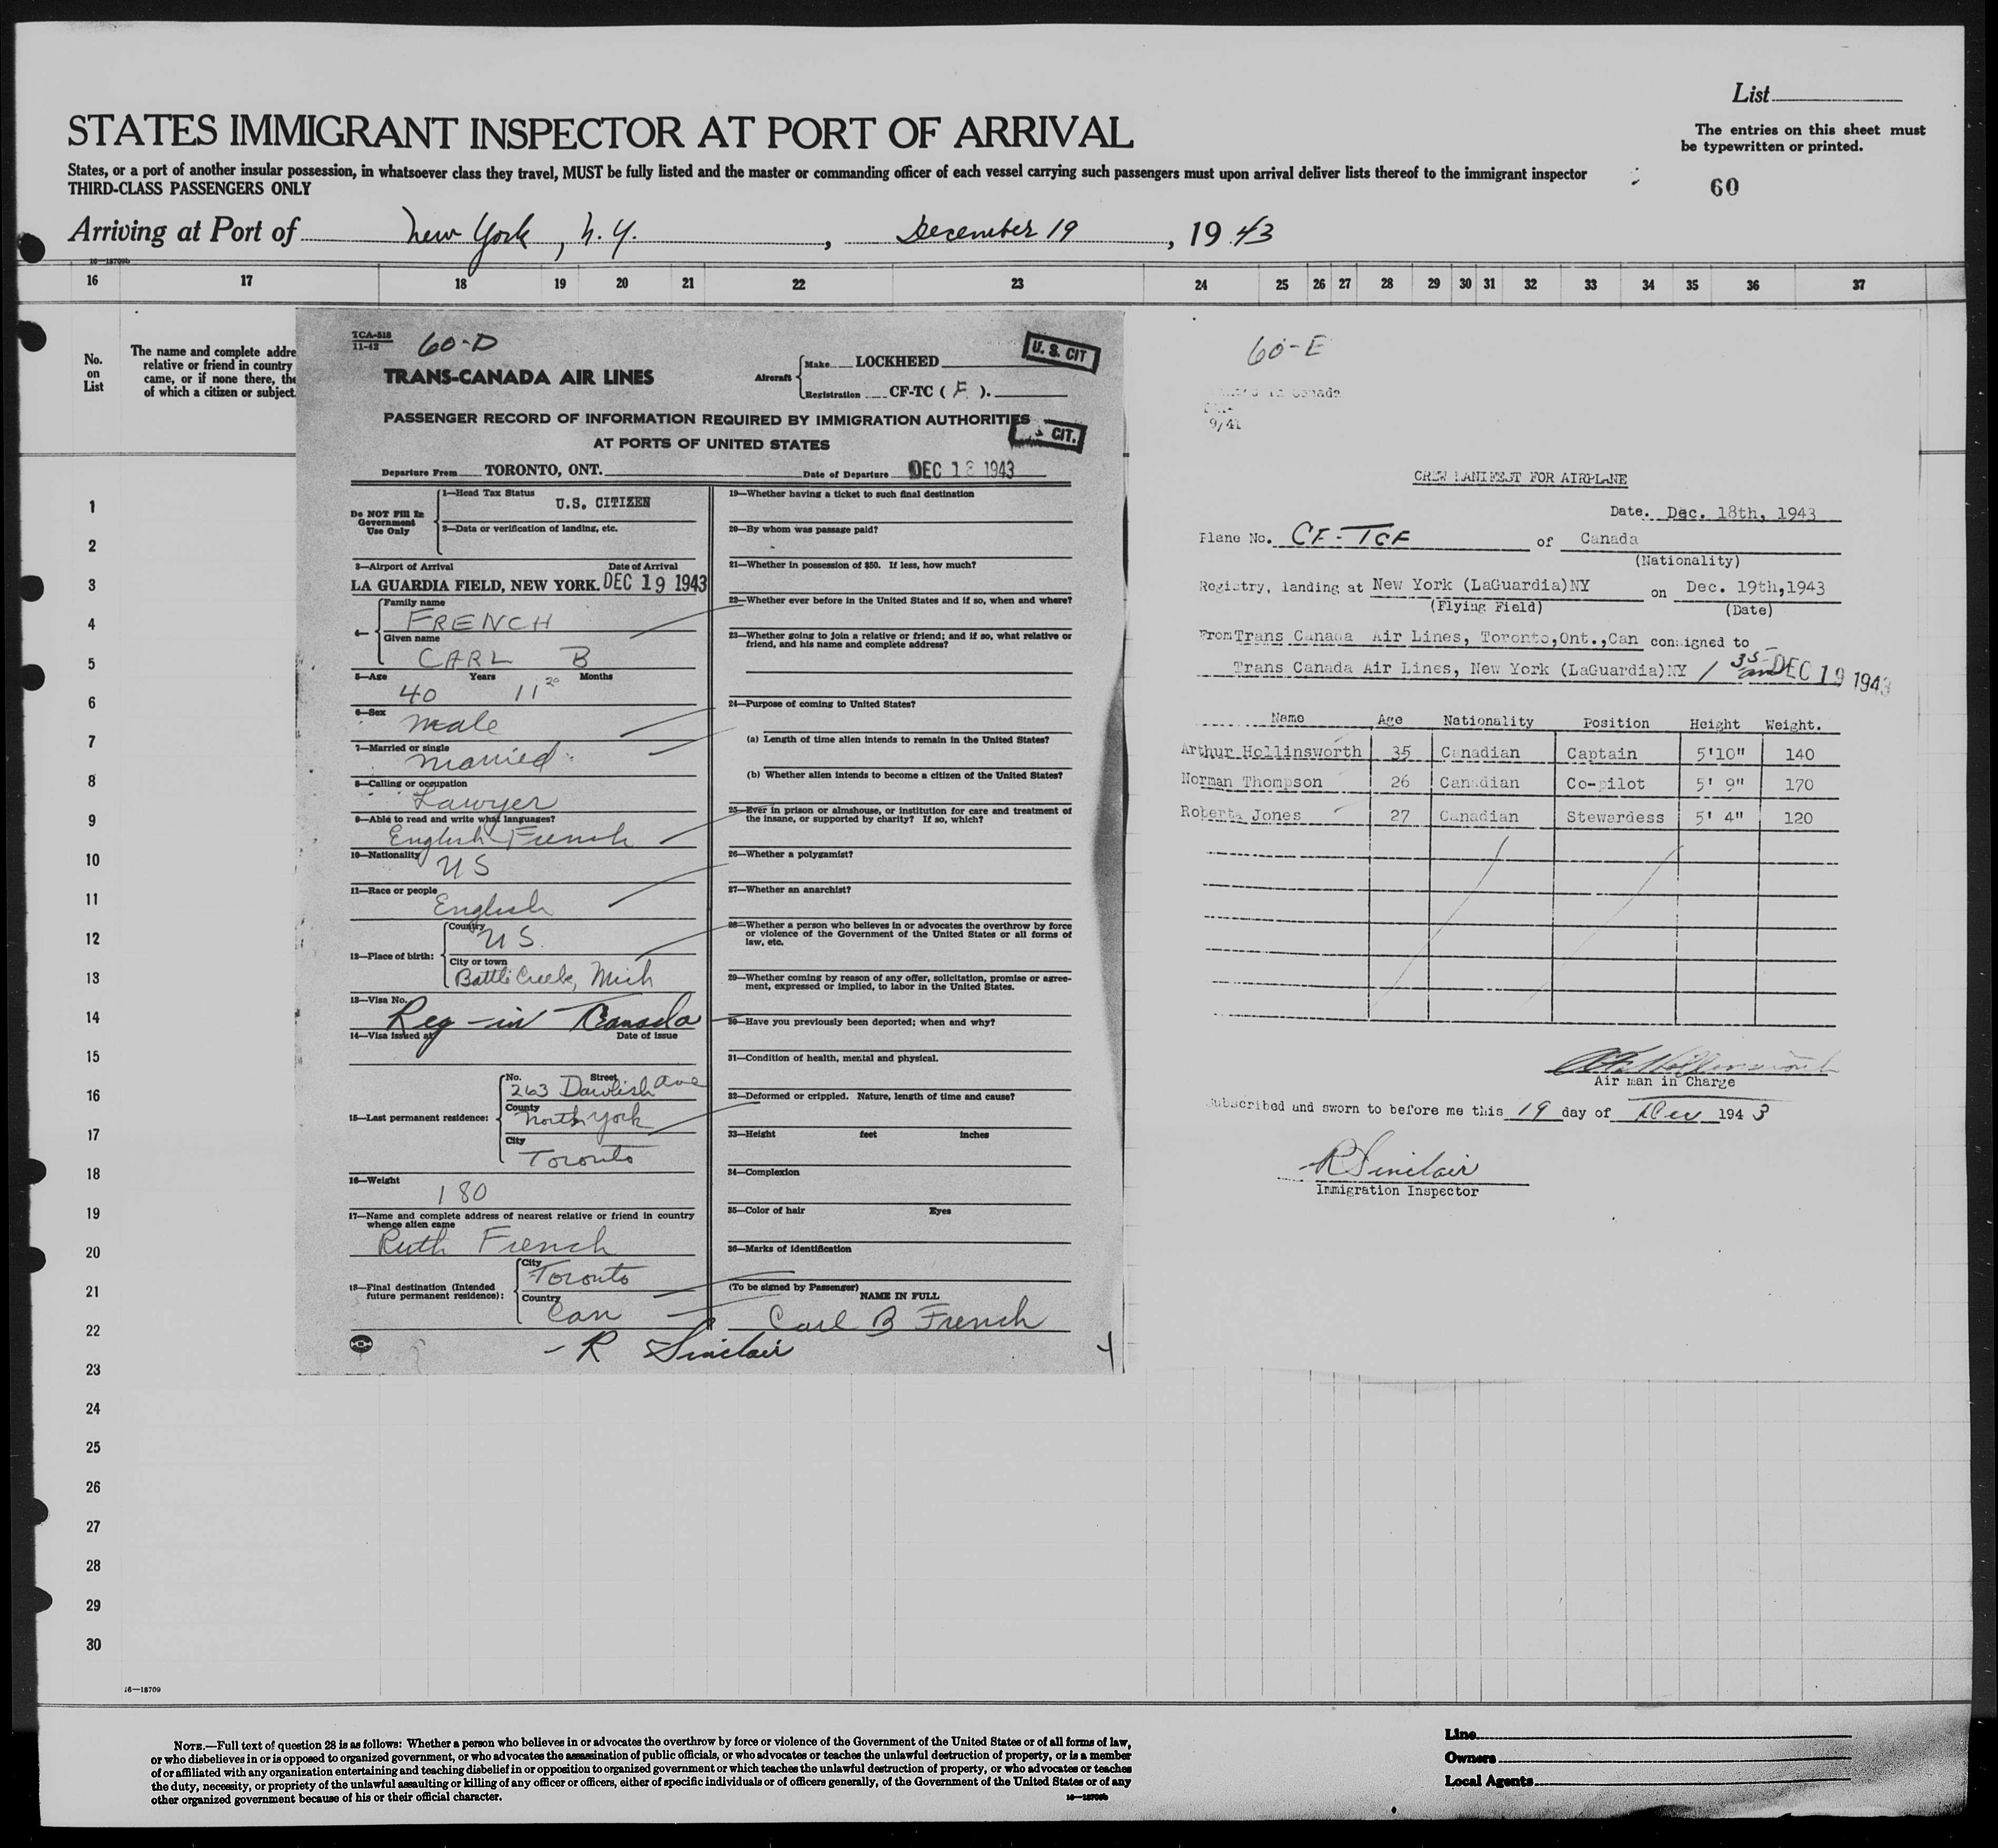 List
STATES IMMIGRANT INSPECTOR AT PORT OF ARRIVAL
The entries on this sheet must
be typewritten or printed.
States, or a port of another insular possession, in whatsoever class they travel, MUST be fully listed and the master or commanding officer of each vessel carrying such passengers must upon arrival deliver lists thereof to the immigrant inspector
THIRD-CLASS PASSENGERS ONLY
60
Arriving at Port of New York, N.Y., December 19, 1943
16-18709b
16 17 18 19 20 21 22 23 24 25 26 27 28 29 30 31 32 33 34 35 36 37
No.
on
List
The name and complete addre
relative or friend in country
came, or if none there, the
of which a citizen or subject
1
2
3
4
5
6
7
8
9
10
11
12
13
14
15
16
17
18
19
20
21
22
23
24
25
26
27
28
29
30
TCA-518
11-42
60-D
U. S. CIT
TRANS-CANADA AIR LINES
Aircraft
Make LOCKHEED
Registration CF-TC ( F ).
PASSENGER RECORD OF INFORMATION REQUIRED BY IMMIGRATION AUTHORITIES
AT PORTS OF UNITED STATES
CIT.
Departure From TORONTO, ONT. Date of Departure DEC 18 1943
Do NOT Fill In
Government
Use Only
1—Head Tax Status
U.S. CITIZEN
2—Data or verification of landing, etc.
3—Airport of Arrival Date of Arrival
LA GUARDIA FIELD, NEW YORK. DEC 19 1943
4—
Family name
FRENCH
Given name
CARL B
5—Age Years Months
40 11 20
6—Sex
male
7—Married or single
married
8—Calling or occupation
Lawyer
9—Able to read and write what languages?
English French
10—Nationality
US
11—Race or people
English
12—Place of birth:
Country
US.
City or town
Battle Creek, Mich
13—Visa No.
Reg-in Canada
14—Visa issued at Date of issue
15—Last permanent residence:
No. Street
263 Dawlish Ave
County
North York
City
Toronto
16—Weight
180
17—Name and complete address of nearest relative or friend in country
whence alien came
Ruth French
18—Final destination (Intended
future permanent residence):
City
Toronto
Country
Can
19—Whether having a ticket to such final destination
20—By whom was passage paid?
21—Whether in possession of $50. If less, how much?
22—Whether ever before in the United States and if so, when and where?
23—Whether going to join a relative or friend; and if so, what relative or
friend, and his name and complete address?
24—Purpose of coming to United States?
(a) Length of time alien intends to remain in the United States?
(b) Whether alien intends to become a citizen of the United States?
25—Ever in prison or almshouse, or institution for care and treatment of
the insane, or supported by charity? If so, which?
26—Whether a polygamist?
27—Whether an anarchist?
28—Whether a person who believes in or advocates the overthrow by force
or violence of the Government of the United States or all forms of
law, etc.
29—Whether coming by reason of any offer, solicitation, promise or agree-
ment, expressed or implied, to labor in the United States.
30—Have you previously been deported; when and why?
31—Condition of health, mental and physical.
32—Deformed or crippled. Nature, length of time and cause?
33—Height feet inches
34—Complexion
35—Color of hair Eyes
36—Marks of identification
(To be signed by Passenger)
NAME IN FULL
Carl B French
- R Sinclair
60-E
in Canada
9/41
CREW MANIFEST FOR AIRPLANE
Date. Dec. 18th, 1943
Plane No. CF-TCF of Canada
(Nationality)
Registry, landing at New York (LaGuardia)NY on Dec. 19th,1943
(Flying Field) (Date)
From Trans Canada Air Lines, Toronto,Ont.,Can consigned to
Trans Canada Air Lines, New York (LaGuardia)NY 1 35 am DEC 19 1943
Name Age Nationality Position Height Weight.
Arthur Hollinsworth 35 Canadian Captain 5'10" 140
Norman Thompson 26 Canadian Co-pilot 5' 9" 170
Roberta Jones 27 Canadian Stewardess 5' 4" 120
Air man in Charge
Subscribed and sworn to before me this 19 day of Dec 1943
R Sinclair
Immigration Inspector
16—18709
NOTE.—Full text of question 28 is as follows: Whether a person who believes in or advocates the overthrow by force or violence of the Government of the United States or of all forms of law,
or who disbelieves in or is opposed to organized government, or who advocates the assassination of public officials, or who advocates or teaches the unlawful destruction of property, or is a member
of or affiliated with any organization entertaining and teaching disbelief in or opposition to organized government or which teaches the unlawful destruction of property, or who advocates or teaches
the duty, necessity, or propriety of the unlawful assaulting or killing of any officer or officers, either of specific individuals or of officers generally, of the Government of the United States or of any
other organized government because of his or their official character.
16—18709b
Line
Owners
Local Agents